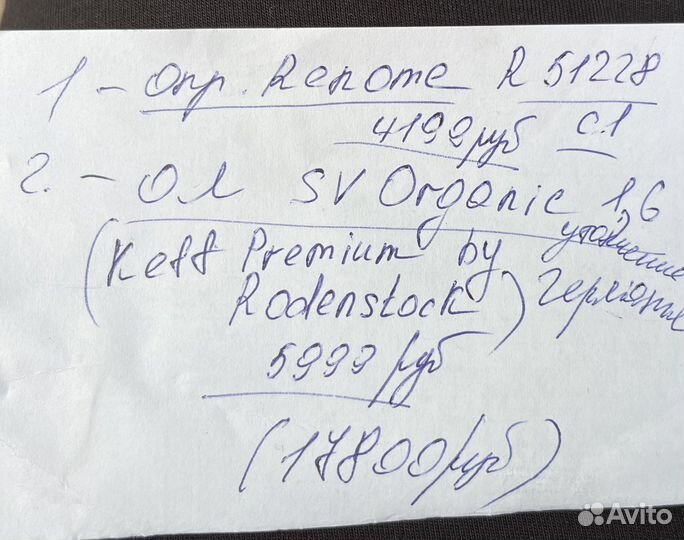 1 - опр. Renome R 51228
4199 руб C.1
2. - ОЛ SV Organic 1,6
(Keff Premium by
Rodenstock) Германия
5999 руб
(17800 руб)
Avito